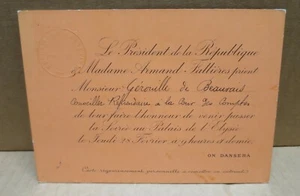 Le Président de la République
& Madame Armand Fallières prient
Monsieur Gérouille de Beauvais
Conseiller Référendaire à la Cour des Comptes
de leur faire l'honneur de venir passer
la Soirée au Palais de l'Elysée
le Jeudi 28 Février à 9 heures et demie.
ON DANSERA
(Carte rigoureusement personnelle à remettre en entrant)